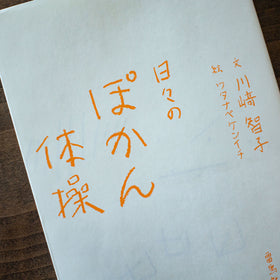 日々の
ぽかん
体操
文 川﨑智子
絵 ワタナベケンイチ